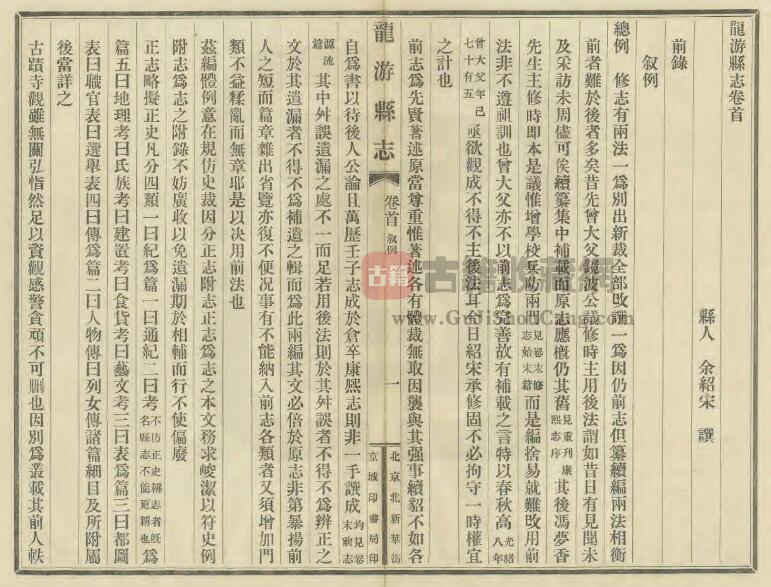 龍游縣志卷首
前錄
叙例
縣人　余紹宋　撰
總例　修志有兩法一爲別出新裁全部改譔一爲因仍前志但纂續編兩法相衡
前者難於後者多矣昔先曾大父鏡波公議修時主用後法謂如昔日有見聞未
及采訪未周儘可俟續纂集中補載而原志應槪仍其舊見重刋康熙志序其後馮夢香
先生主修時即本是議惟增學校兵防兩門見卷末修志始末篇而是編捨易就難改用前
法非不遵祖訓也曾大父亦不以前志爲完善故有補載之言特以春秋高光緒八年
曾大父年已七十有五亟欲觀成不得不主後法耳今日紹宋承修固不必拘守一時權宜
之計也
前志爲先賢著述原當尊重惟著述各有體裁無取因襲與其强事續貂不如各
龍游縣志
卷首　叙例
一
北京北新華街
京城印書局印
自爲書以待後人公論且萬歷壬子志成於倉卒康熙志則非一手譔成均見卷末前志
源流篇其中舛誤遺漏之處不一而足若用後法則於其舛誤者不得不爲辨正之
文於其遺漏者不得不爲補遺之輯而爲此兩編其文必倍於原志非第暴揚前
人之短而篇章雜出省覽亦復不便况事有不能納入前志各類者又須增加門
類不益糅亂而無章耶是以决用前法也
茲編體例意在規仿史裁因分正志附志正志爲志之本文務求峻潔以符史例
附志爲志之附錄不妨廣收以免遺漏期於相輔而行不使偏廢
正志略擬正史凡分四類一曰紀爲篇一曰通紀二曰考不仿正史稱志者旣名縣志不能更稱也爲
篇五曰地理考曰氏族考曰建置考曰食貨考曰藝文考三曰表爲篇三曰都圖
表曰職官表曰選舉表四曰傳爲篇二曰人物傳曰列女傳諸篇細目及所附屬
後當詳之
古蹟寺觀雖無關弘恉然足以資觀感警貪頑不可删也因別爲叢載其前人軼
古籍收藏網
www.GuJiShouCang.com